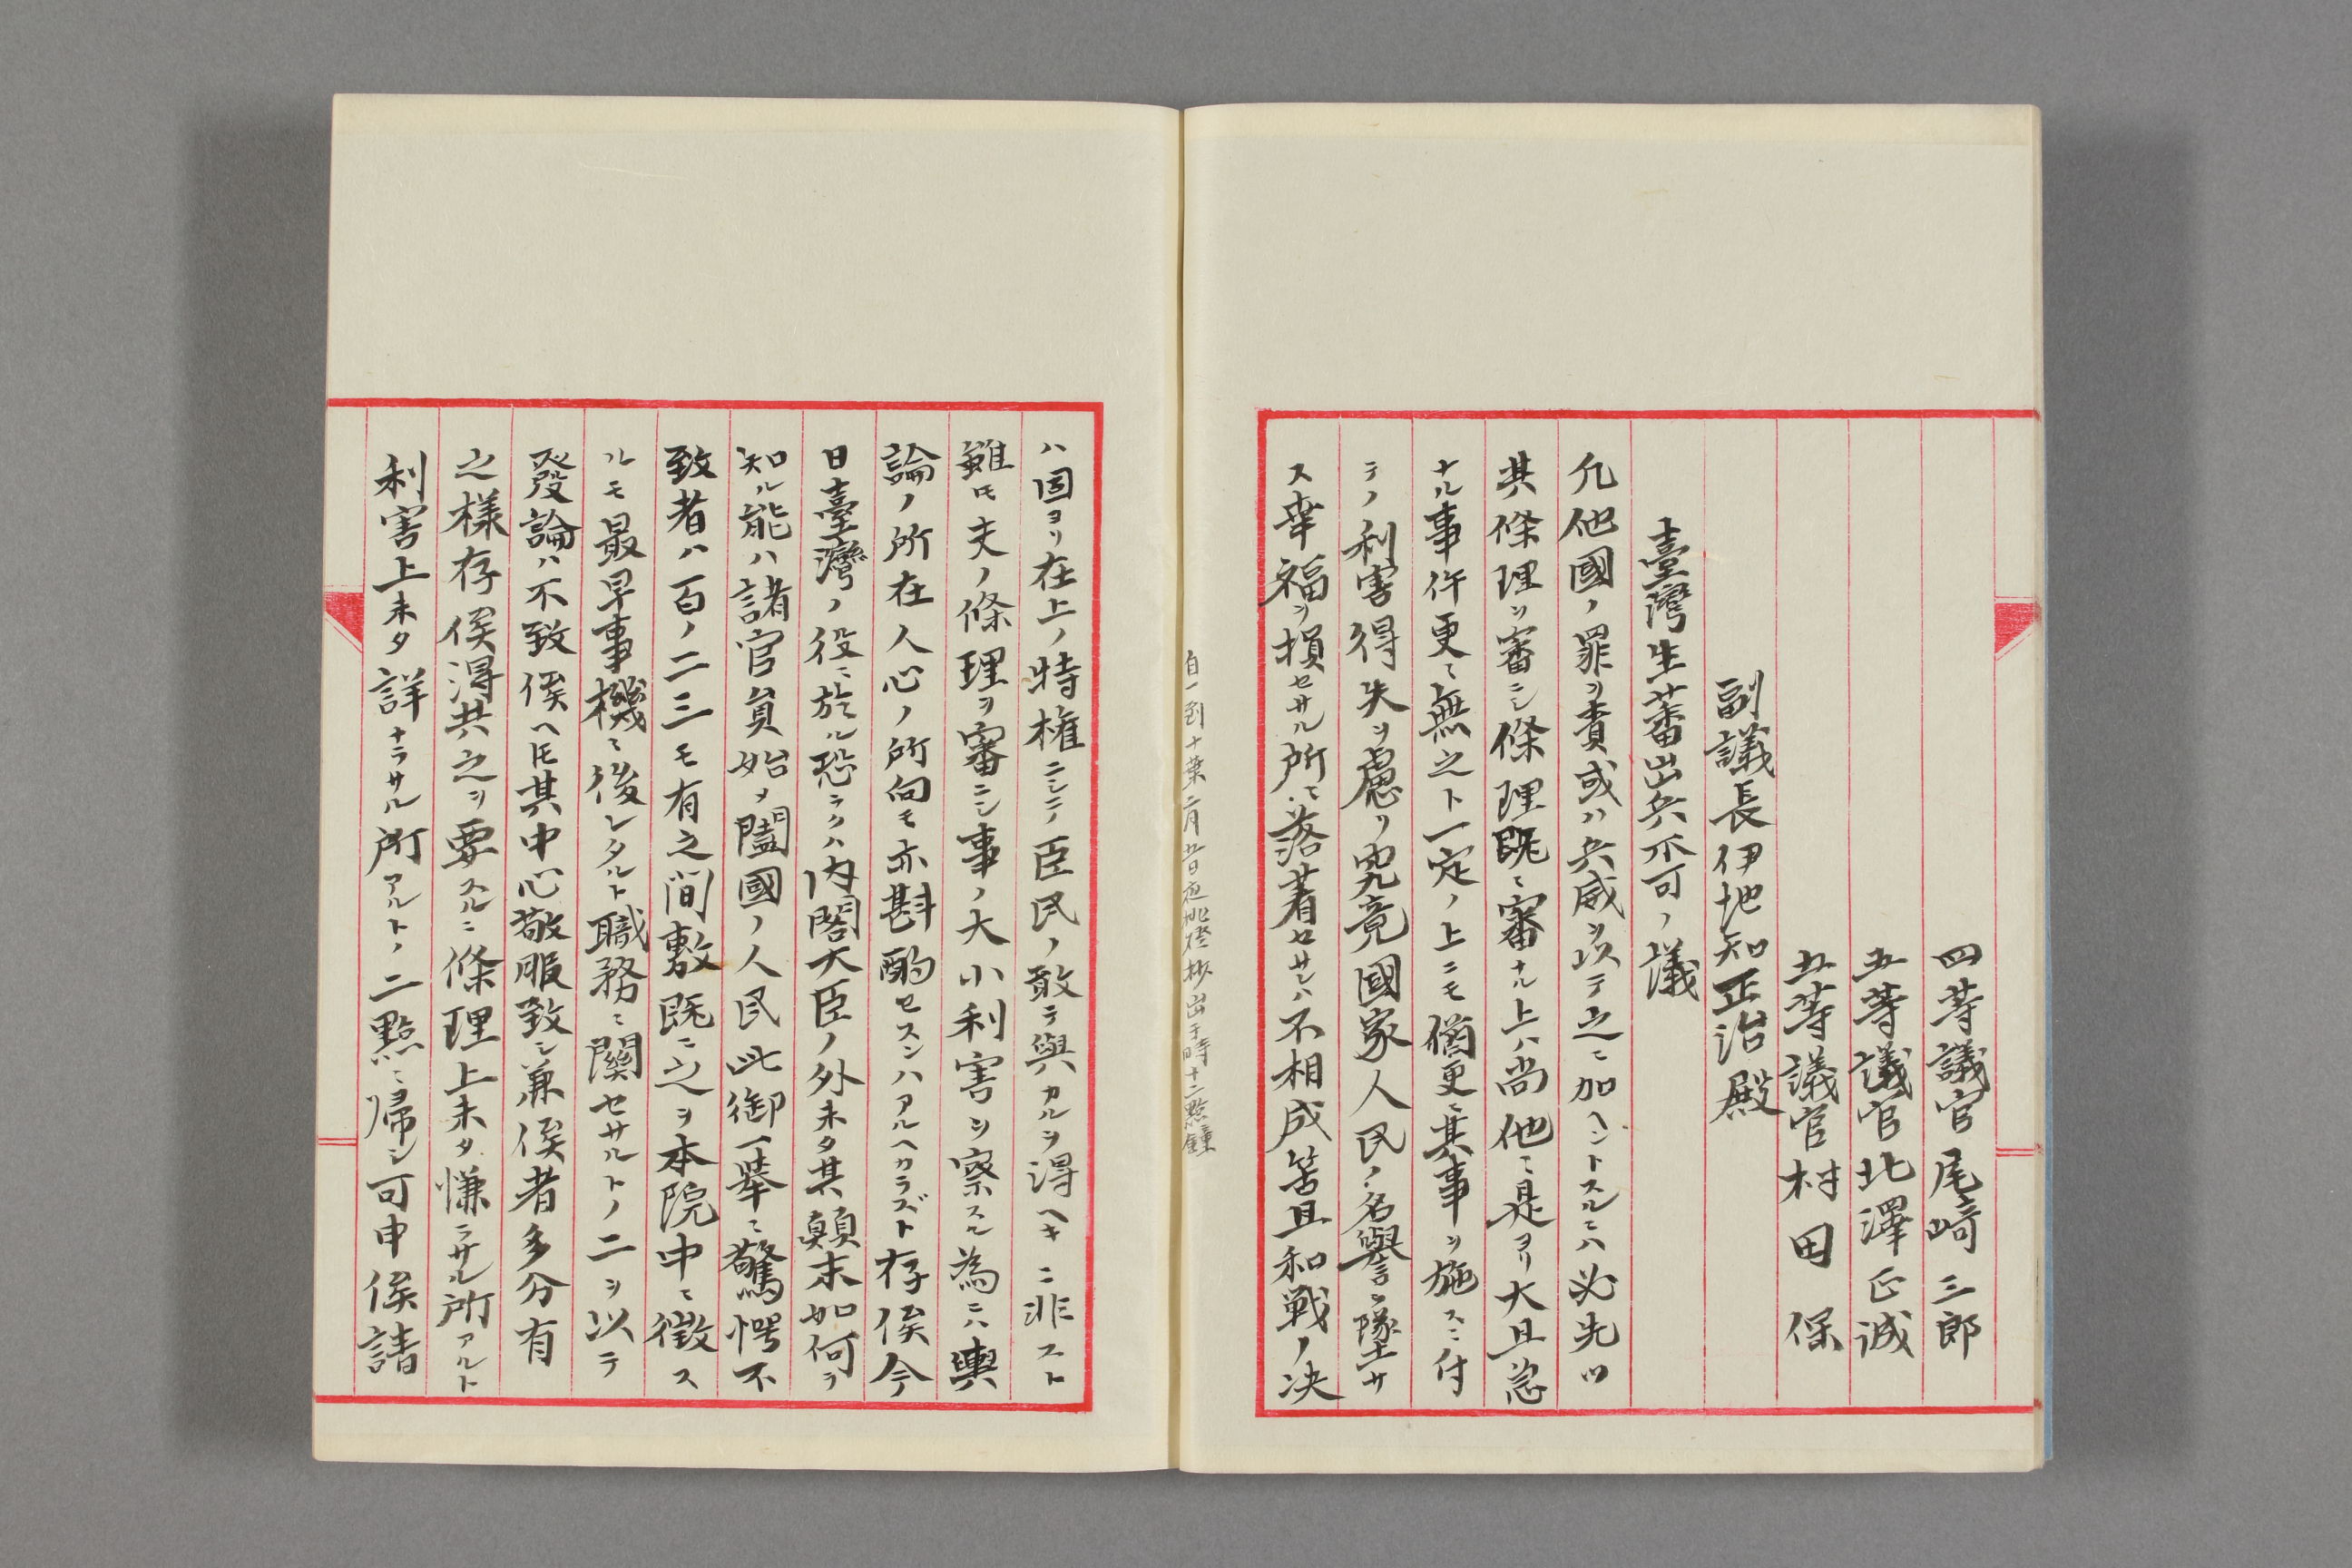 四等議官尾﨑三郎
五等議官北澤正誠
五等議官村田保
副議長伊地知正治殿
臺灣生蕃出兵不可ノ議
凡他國ノ罪ヲ責或ハ兵威ヲ以テ之ニ加ヘントスルニハ必先ツ
其條理ヲ審ニシ條理既ニ審ナル上ハ尚他ニ是ヨリ大且急
ナル事件更ニ無之ト一定ノ上ニモ猶更ニ其事ヲ施スニ付
テノ利害得失ヲ慮リ究竟國家人民ノ名譽ヲ墜サ
ス幸福ヲ損セサル所ニ落着セサレハ不相成筈且和戦ノ决
自一到十葉二月廿日夜挑燈抄出于時十二點鐘
ハ固ヨリ在上ノ特権ニシテ臣民ノ敢テ與カルヲ得ヘキニ非スト
雖𪜈夫ノ條理ヲ審ニシ事ノ大小利害ヲ察スル為ニハ輿
論ノ所在人心ノ所向モ亦斟酌セスンハアルヘカラズト存候今
日臺灣ノ役ニ於ル恐ラクハ内閣大臣ノ外未タ其顛末如何ヲ
知ル能ハ諸官員始メ闔國ノ人民此御一挙ニ驚愕不
致者ハ百ノ二三モ有之間敷既ニ之ヲ本院中ニ徴ス
ルモ最早事機ニ後レタルト職務ニ關セサルトノ二ヲ以テ
發論ハ不致候ヘ𪜈其中心敬服致シ兼候者多分有
之様存候得共之ヲ要スルニ條理上未タ慊ラサル所アルト
利害上未タ詳ナラサル所アルトノ二點ニ帰シ可申候請